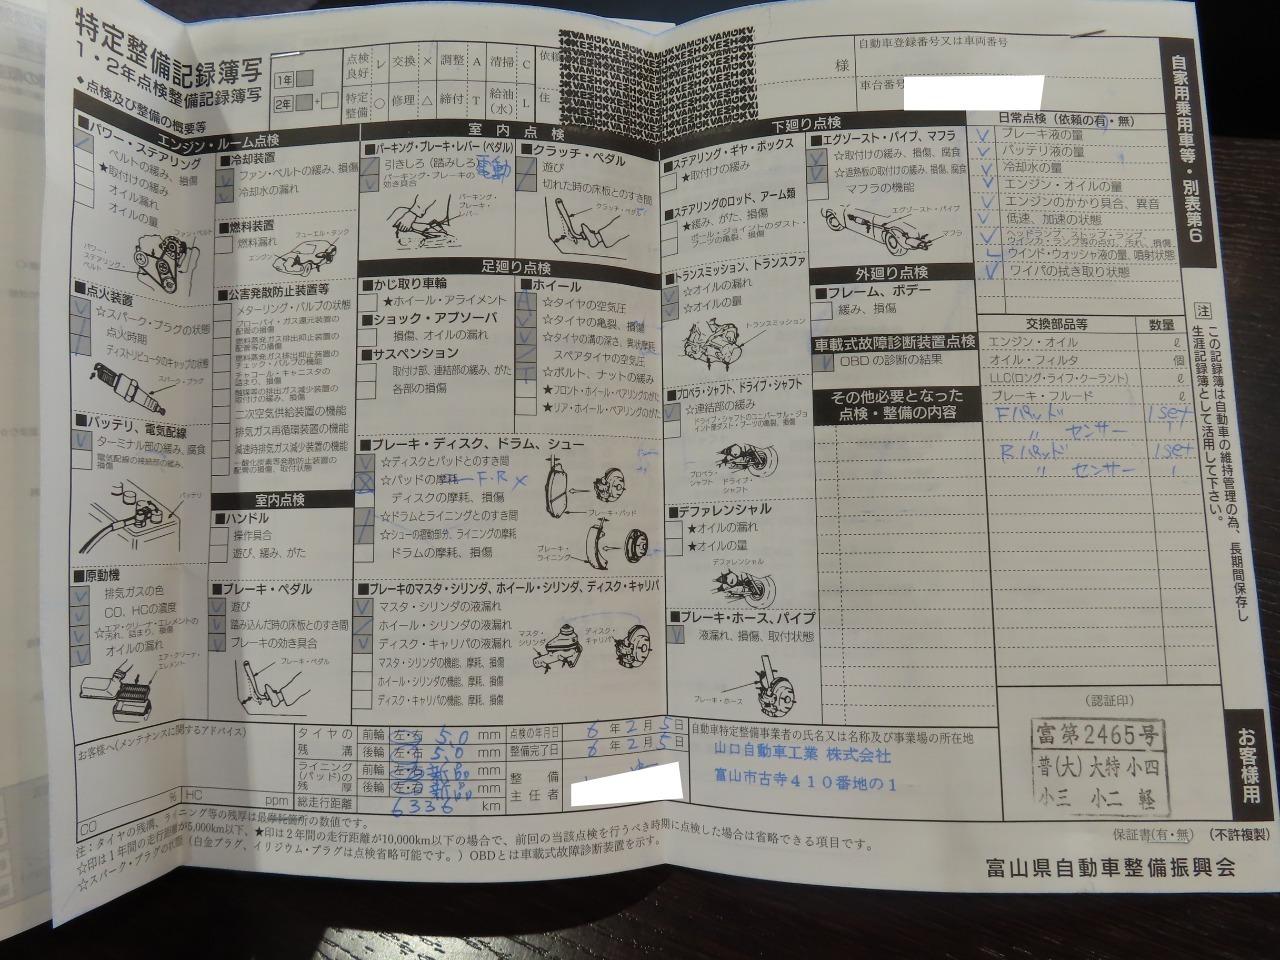 特定整備記録簿写
1・2年点検整備記録簿写
◆点検及び整備の概要等
1年
2年
点検良好 レ 交換 × 調整 A 清掃 C
特定整備 ○ 修理 △ 締付 T 給油(水) L
依頼
住
様
自動車登録番号又は車両番号
車台番号
自家用乗用車等・別表第6
エンジン・ルーム点検
■パワー・ステアリング
ベルトの緩み、損傷
★取付けの緩み
オイル漏れ
オイルの量
ファン・ベルト
パワー・ステアリング・ベルト
■点火装置
☆スパーク・プラグの状態
点火時期
ディストリビュータのキャップの状態
スパーク・プラグ
■バッテリ、電気配線
ターミナル部の緩み、腐食
電気配線の接続部の緩み、損傷
バッテリ
■原動機
排気ガスの色
CO、HCの濃度
☆エア・クリーナ・エレメントの汚れ、詰まり、損傷
オイルの漏れ
エア・クリーナ・エレメント
■冷却装置
ファン・ベルトの緩み、損傷
冷却水の漏れ
■燃料装置
燃料漏れ
フューエル・タンク
エンジン
■公害発散防止装置等
メターリング・バルブの状態
ブローバイ・ガス還元装置の配管の損傷
燃料蒸発ガス排出抑止装置の配管等の損傷
燃料蒸発ガス排出抑止装置のチェック・バルブの機能
チャコール・キャニスタの詰まり、損傷
触媒等の排出ガス減少装置の取付けの緩み、損傷
二次空気供給装置の機能
排気ガス再循環装置の機能
減速時排気ガス減少装置の機能
一酸化炭素等発散防止装置の配管の損傷、取付状態
室内点検
■ハンドル
操作具合
遊び、緩み、がた
■ブレーキ・ペダル
遊び
踏み込んだ時の床板とのすき間
ブレーキの効き具合
ブレーキ・ペダル
室内点検
■パーキング・ブレーキ・レバー(ペダル)
引きしろ(踏みしろ)
パーキング・ブレーキの効き具合
電動
パーキング・ブレーキ・レバー
■クラッチ・ペダル
遊び
切れた時の床板とのすき間
クラッチ・ペダル
足廻り点検
■かじ取り車輪
★ホイール・アライメント
■ショック・アブソーバ
損傷、オイルの漏れ
■サスペンション
取付部、連結部の緩み、がた
各部の損傷
■ホイール
☆タイヤの空気圧
☆タイヤの亀裂、損傷
☆タイヤの溝の深さ、異状摩耗
スペアタイヤの空気圧
☆ボルト、ナットの緩み
★フロント・ホイール・ベアリングのがた
★リア・ホイール・ベアリングのがた
■ブレーキ・ディスク、ドラム、シュー
☆ディスクとパッドとのすき間
☆パッドの摩耗 F.R ×
ディスクの摩耗、損傷
☆ドラムとライニングとのすき間
☆シューの摺動部分、ライニングの摩耗
ドラムの摩耗、損傷
ブレーキ・パッド
ブレーキ・ライニング
■ブレーキのマスタ・シリンダ、ホイール・シリンダ、ディスク・キャリパ
マスタ・シリンダの液漏れ
ホイール・シリンダの液漏れ
ディスク・キャリパの液漏れ
マスタ・シリンダの機能、摩耗、損傷
ホイール・シリンダの機能、摩耗、損傷
ディスク・キャリパの機能、摩耗、損傷
マスタ・シリンダ
ディスク・キャリパ
下廻り点検
■ステアリング・ギヤ・ボックス
★取付けの緩み
■ステアリングのロッド、アーム類
★緩み、がた、損傷
ボール・ジョイントのダスト・ブーツの亀裂、損傷
■トランスミッション、トランスファ
☆オイルの漏れ
☆オイルの量
トランスミッション
■プロペラ・シャフト、ドライブ・シャフト
☆連結部の緩み
ドライブ・シャフトのユニバーサル・ジョイント部ダスト・ブーツの亀裂、損傷
プロペラ・シャフト
ドライブ・シャフト
■デファレンシャル
★オイルの漏れ
★オイルの量
デファレンシャル
■ブレーキ・ホース、パイプ
液漏れ、損傷、取付状態
ブレーキ・ホース
■エグゾースト・パイプ、マフラ
☆取付けの緩み、損傷、腐食
☆遮熱板の取付けの緩み、損傷、腐食
マフラの機能
エグゾースト・パイプ
マフラ
外廻り点検
■フレーム、ボデー
緩み、損傷
車載式故障診断装置点検
OBDの診断の結果
その他必要となった点検・整備の内容
日常点検(依頼の有・無)
ブレーキ液の量
バッテリ液の量
冷却水の量
エンジン・オイルの量
エンジンのかかり具合、異音
低速、加速の状態
ヘッドランプ、ストップ・ランプ、ウインカ・ランプ等の点灯、汚れ、損傷
ウインド・ウォッシャ液の量、噴射状態
ワイパの拭き取り状態
交換部品等 数量
エンジン・オイル ℓ
オイル・フィルタ 個
LLC(ロング・ライフ・クーラント) ℓ
ブレーキ・フルード ℓ
Fパッド 1set
〃 センサー 1
Rパッド 1set
〃 センサー 1
注 この記録簿は自動車の維持管理の為、長期間保存し生涯記録簿として活用して下さい。
お客様用
お客様へ(メンテナンスに関するアドバイス)
CO % HC ppm
タイヤの残溝 前輪 左・右 5.0 mm
後輪 左・右 5.0 mm
ライニング(パッド)の残厚 前輪 左・右 mm
後輪 左・右 mm
総走行距離 6336 km
点検の年月日 6年2月5日
整備完了日 6年2月5日
整備主任者
自動車特定整備事業者の氏名又は名称及び事業場の所在地
山口自動車工業 株式会社
富山市古寺410番地の1
(認証印)
富第2465号
普(大)大特 小四
小三 小二 軽
保証書(有・無) (不許複製)
注：タイヤの残溝、ライニング等の残厚は最摩耗箇所の数値です。
☆印は1年間の走行距離が5,000km以下、★印は2年間の走行距離が10,000km以下の場合で、前回の当該点検を行うべき時期に点検した場合は省略できる項目です。
☆スパーク・プラグの状態(白金プラグ、イリジウム・プラグは点検省略可能です。)OBDとは車載式故障診断装置を示す。
富山県自動車整備振興会